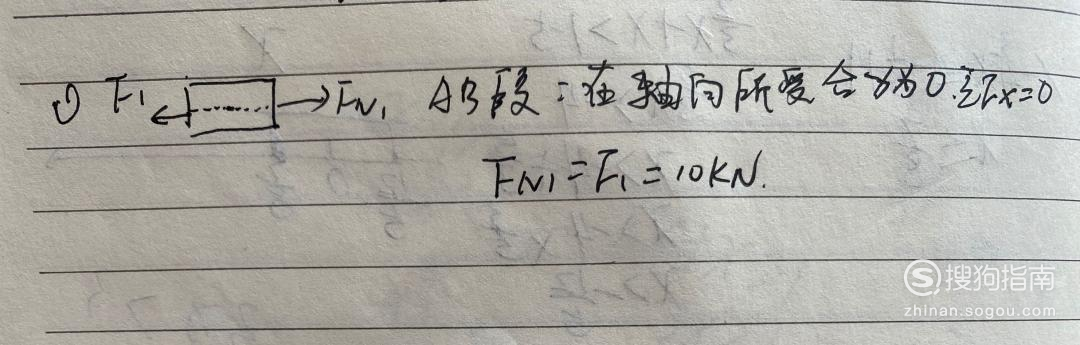 ① F₁ FN₁ AB段：在轴向所受合力为0.ΣFx=0
FN₁=F₁=10KN.
搜狗指南
zhinan.sogou.com